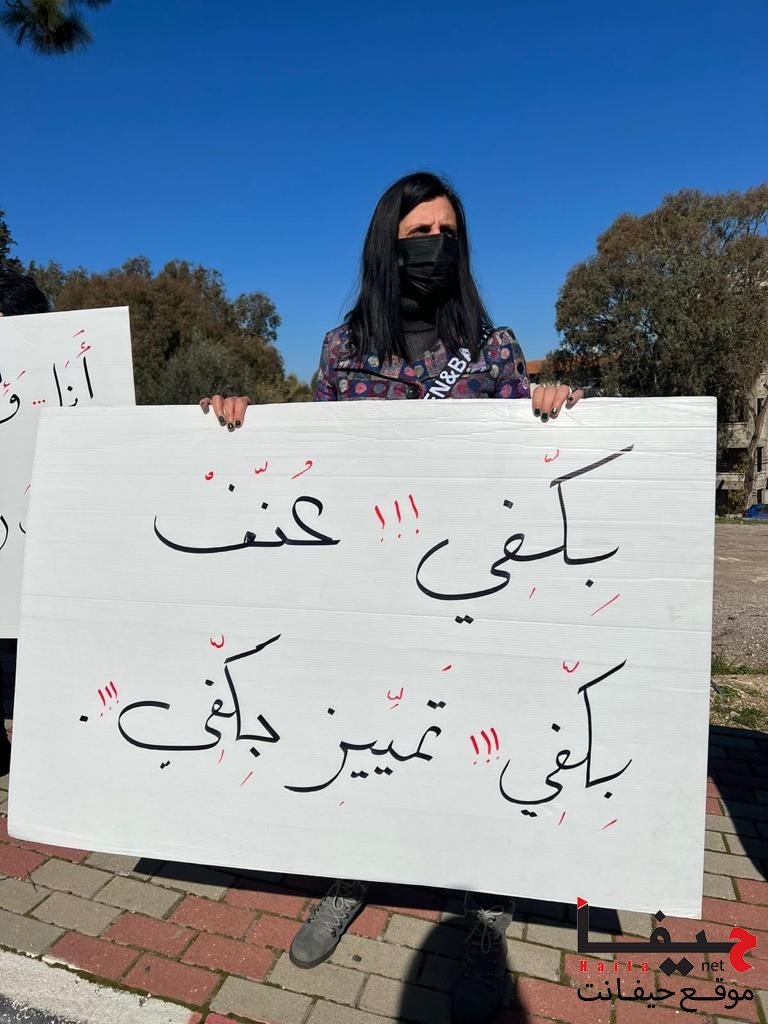 أَنَا ...
بِكِفّي !!! عُنّفْ
بِكِفّي !!! تَمييّز بِكِفّي !!!.
EN&BA
حيفا
Haifa net
موقع حيفانت